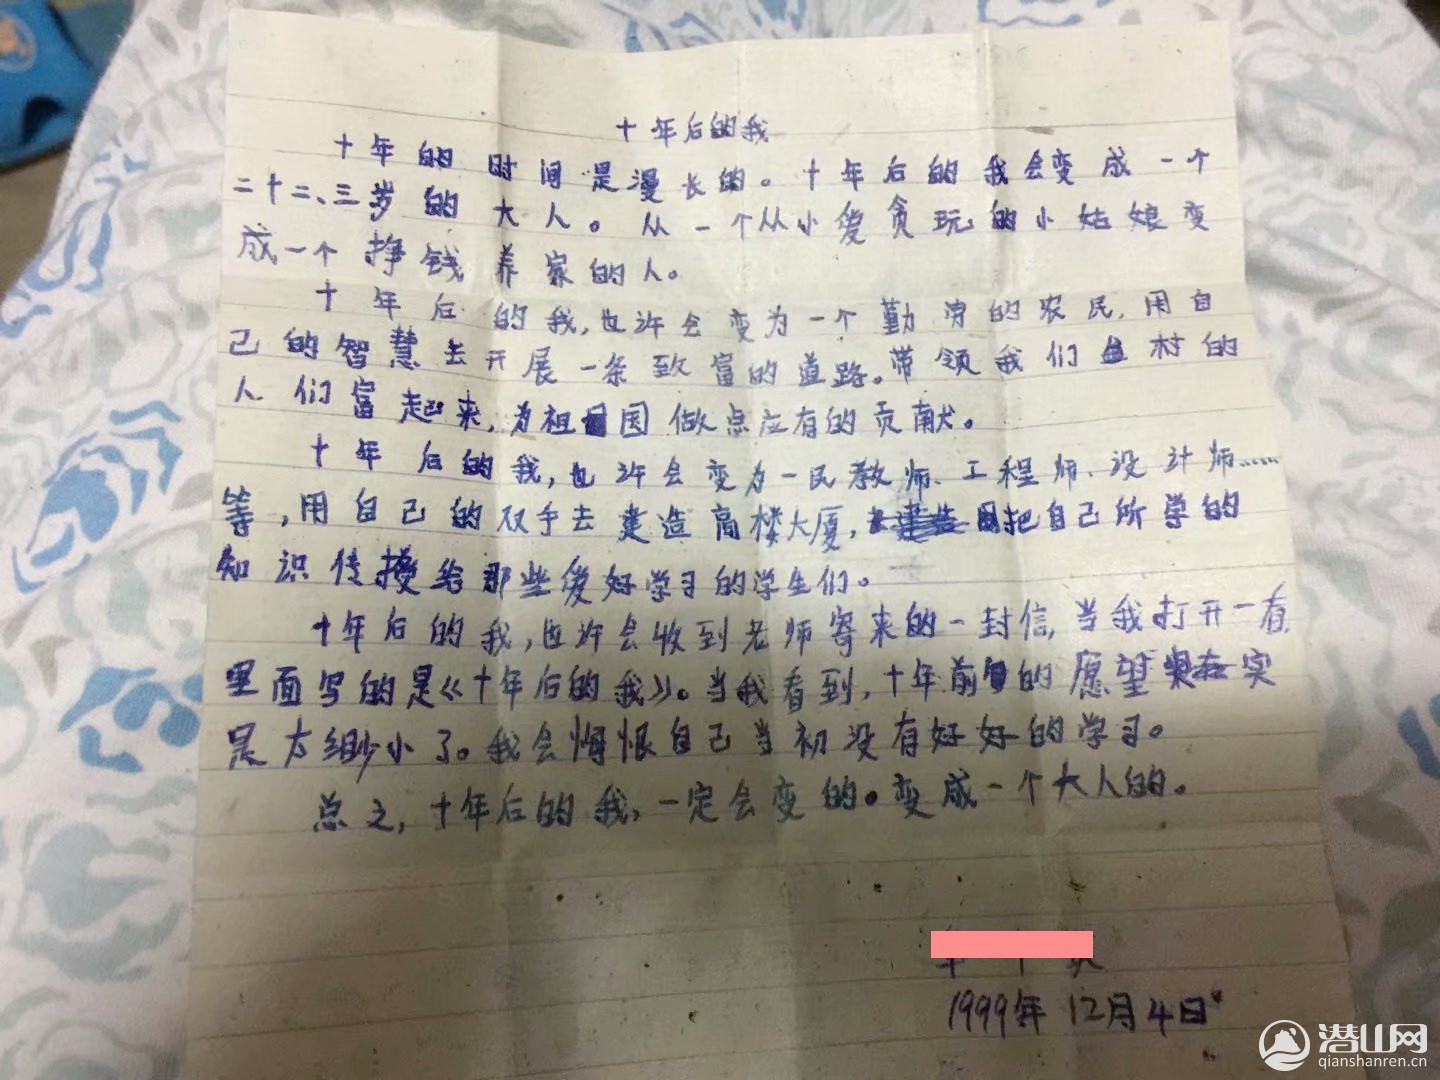 十年后的我
十年的时间是漫长的。十年后的我会变成一个
二十二、三岁的大人。从一个从小爱贪玩的小姑娘变
成一个挣钱养家的人。
十年后的我,也许会变为一个勤劳的农民,用自
己的智慧去开展一条致富的道路。带领我们村的
人们富起来,为祖国做点应有的贡献。
十年后的我,也许会变为一民教师、工程师、设计师……
等,用自己的双手去建造高楼大厦,把自己所学的
知识传授给那些爱好学习的学生们。
十年后的我,也许会收到老师寄来的一封信,当我打开一看,
里面写的是《十年后的我》。当我看到,十年前的愿望实
是太渺小了。我会悔恨自己当初没有好好的学习。
总之,十年后的我,一定会变的。变成一个大人的。
1999年12月4日
潜山网
qianshanren.cn